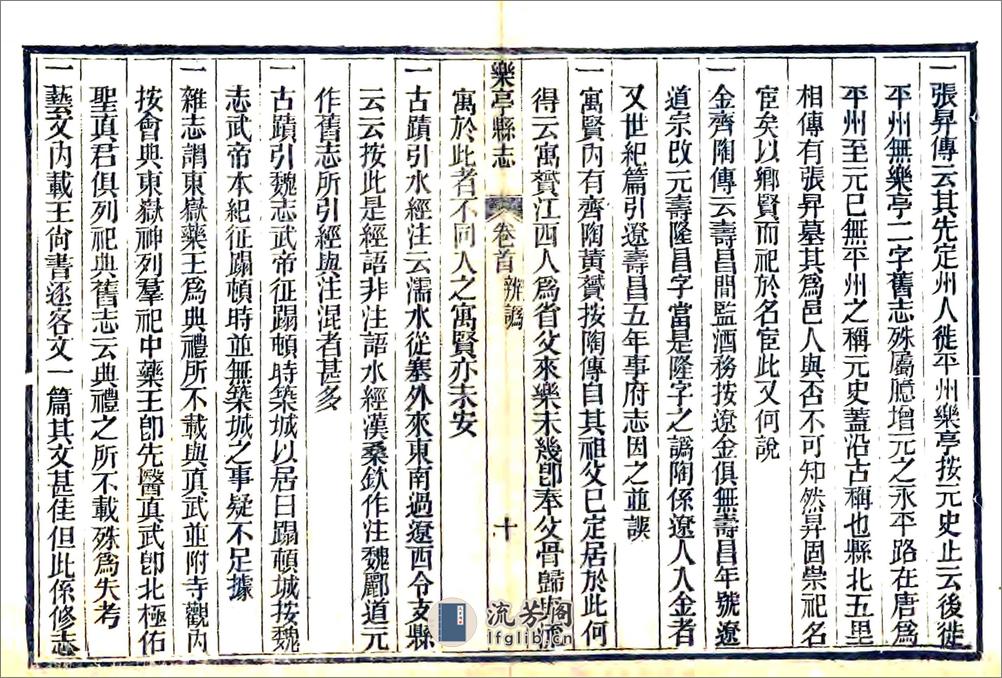 一張昇傳云其先定州人徙平州樂亭按元史止云後徙
平州無樂亭二字舊志殊屬臆增元之永平路在唐為
平州至元已無平州之稱元史蓋沿古稱也縣北五里
相傳有張昇墓其為邑人與否不可知然昇固崇祀名
宦矣以鄉賢而祀於名宦此又何說
一金齊陶傳云壽昌間監酒務按遼金俱無壽昌年號遼
道宗改元壽隆昌字當是隆字之譌陶係遼人入金者
又世紀篇引遼壽昌五年事府志因之並誤
一寓賢內有齊陶黃贇按陶傳自其祖父已定居於此何
得云寓贇江西人為省父來樂未幾卽奉父骨歸與
寓於此者不同入之寓賢亦未安
樂亭縣志
卷首
辨譌
十
一古蹟引水經注云濡水從塞外來東南過遼西令支縣
云云按此是經語非注語水經漢桑欽作注魏酈道元
作舊志所引經與注混者甚多
一古蹟引魏志武帝征蹋頓時築城以居曰蹋頓城按魏
志武帝本紀征蹋頓時並無築城之事疑不足據
一雜志謂東嶽藥王為典禮所不載與真武並附寺觀內
按會典東嶽神列羣祀中藥王卽先醫真武卽北極佑
聖真君俱列祀典舊志云典禮之所不載殊為失考
一藝文內載王尚書逐客文一篇其文甚佳但此係修志
流芳閣
lfglib.cn